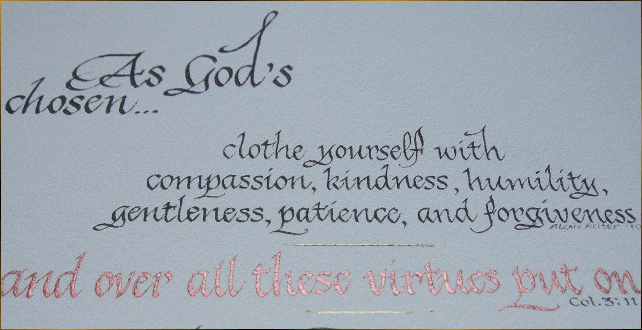 As God's
chosen...
clothe yourself with
compassion, kindness, humility,
gentleness, patience, and forgiveness
and over all these virtues put on
Col. 3:11